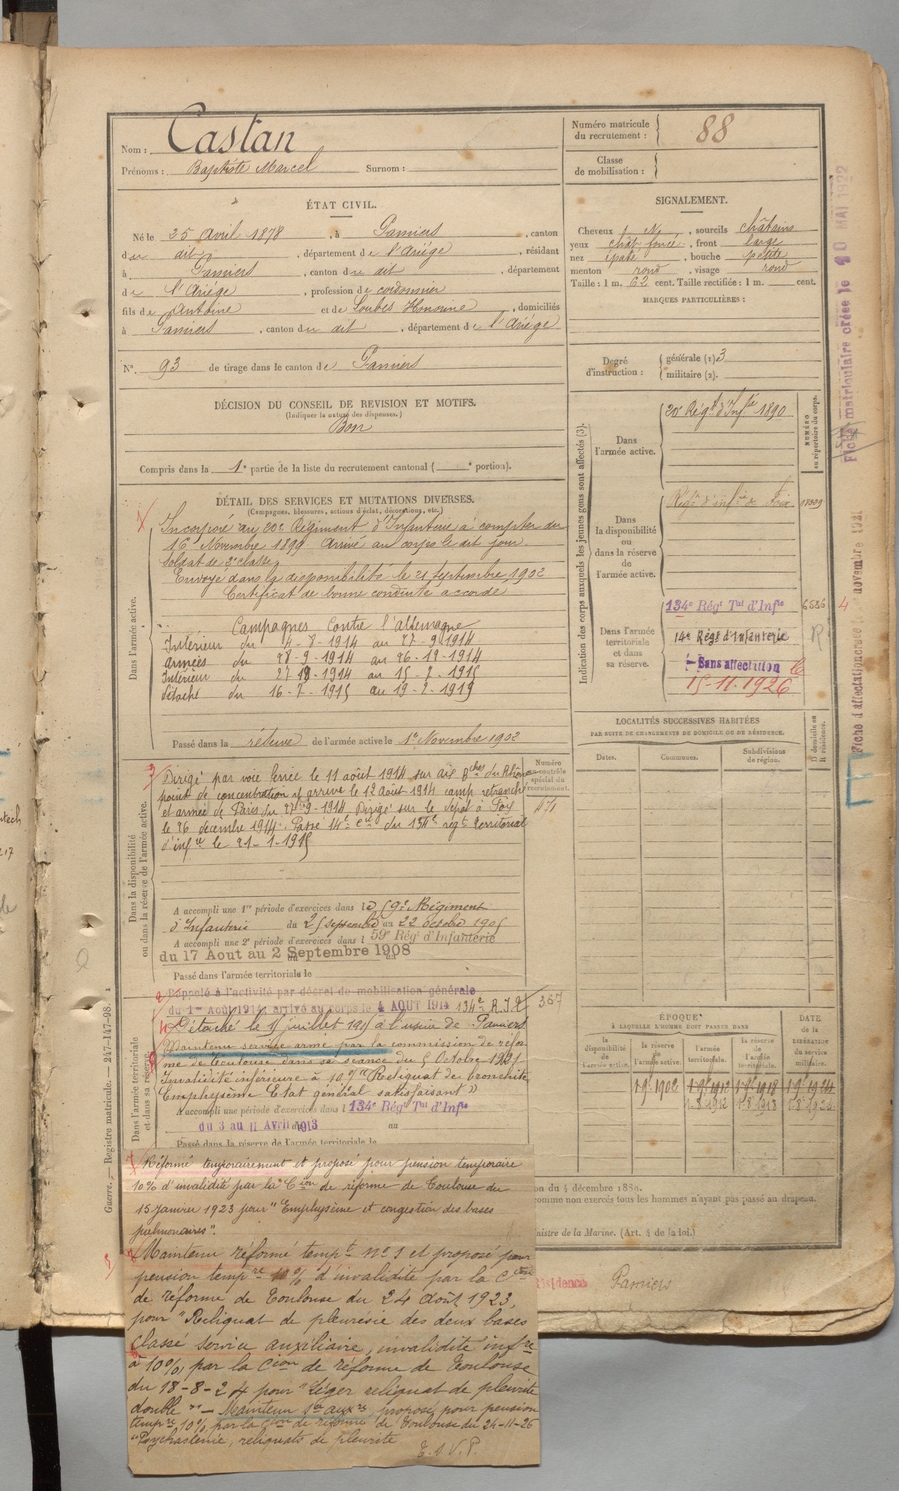 Nom : Castan
Prénoms : Baptiste Marcel Surnom :
Numéro matricule du recrutement : 88
Classe de mobilisation :
ÉTAT CIVIL.
Né le 25 Avril 1878, à Pamiers, canton
du dit, département de l'Ariége, résidant
à Pamiers, canton du dit, département
de l'Ariége, profession de cordonnier
fils de Antoine et de Honorine, domiciliés
à Pamiers, canton du dit, département de l'Ariége
N° 93 de tirage dans le canton de Pamiers
SIGNALEMENT.
Cheveux N, sourcils châtains
yeux chât. foncé, front large
nez épaté, bouche petite
menton rond, visage rond
Taille : 1 m. 62 cent. Taille rectifiée : 1 m. cent.
MARQUES PARTICULIÈRES :
Degré d'instruction : générale (1) 3
militaire (2).
DÉCISION DU CONSEIL DE REVISION ET MOTIFS.
(Indiquer la nature des dispenses.)
Bon
Compris dans la 1e partie de la liste du recrutement cantonal ( e portion).
DÉTAIL DES SERVICES ET MUTATIONS DIVERSES.
(Campagnes, blessures, actions d'éclat, décorations, etc.)
Dans l'armée active.
Incorporé au 20e Régiment d'Infanterie à compter du
16 Novembre 1899 Arrivé au corps le dit jour.
Soldat de 2e classe.
Envoyé dans la disponibilité le 21 Septembre 1902
Certificat de bonne conduite accordé
Campagnes Contre l'allemagne
Intérieur du 4-8-1914 au 27-9-1914
armées du 28-9-1914 au 26-12-1914
Intérieur du 27-12-1914 au 15-7-1915
détaché du 16-7-1915 au
Passé dans la réserve de l'armée active le 1er Novembre 1902
Dans la disponibilité ou dans la réserve de l'armée active.
Dirigé par voie ferrée le 11 août 1914 sur
point de concentration y arrivé le 12 août 1914 camp retranché
et armée de Paris du 27-9-1914. Dirigé sur le dépôt à Foix
le 26 décembre 1914. Passé 14e Cie du 134e régt territorial
d'infie le 21-1-1915
Numéro au contrôle spécial du recrutement.
A accompli une 1re période d'exercices dans le 59e Régiment
d'Infanterie du 25 septembre au 22 octobre 1905
A accompli une 2e période d'exercices dans l 59e Régt d'Infanterie
du 17 Aout au 2 Septembre 1908
Passé dans l'armée territoriale le
Dans l'armée territoriale et dans sa réserve.
Rappelé à l'activité par décret de mobilisation générale
du 1er Août 1914, arrivé au corps le 4 AOUT 1914 134e R.I.T. 367
Détaché le 15 juillet 1915 à l'usine de Pamiers
Maintenu service armé par la commission de réfor-
me de Toulouse dans sa séance du 5 Octobre 1921
Invalidité inférieure à 10% "Reliquat de bronchite
Emphysème Etat général satisfaisant"
A accompli une période d'exercices dans l 134e Régt Tal d'Infie
du 3 au 11 Avril 1913 au
Passé dans la réserve de l'armée territoriale le
Réformé temporairement et proposé pour pension temporaire
10% d'invalidité par la Cion de réforme de Toulouse du
15 janvier 1923 pour "Emphysème et congestion des bases
pulmonaires".
Maintenu réformé tempre No 1 et proposé pour
pension tempre 10% d'invalidité par la Cion
de réforme de Toulouse du 24 août 1923,
pour "Reliquat de pleurésie des deux bases
Classé service auxiliaire, invalidité infre
à 10%, par la Cion de réforme de Toulouse
du 18-8-24 pour "Léger reliquat de pleurite
double" - Maintenu Sce auxre proposé pour pension
tempre 10% par la Cion de réforme de Toulouse du 24-11-26
"Psychastenie, reliquats de pleurite
Indication des corps auxquels les jeunes gens sont affectés (3).
NUMÉRO au répertoire du corps.
Dans l'armée active.
20e Régt d'Infie
Dans la disponibilité ou dans la réserve de l'armée active.
Régt d'infie de Foix
Dans l'armée territoriale et dans sa réserve.
134e Régt Tal d'Infie
14e Régt d'Infanterie
Sans affectation
15-11-1926
LOCALITÉS SUCCESSIVES HABITÉES
PAR SUITE DE CHANGEMENTS DE DOMICILE OU DE RÉSIDENCE.
Dates. Communes. Subdivisions de région. D domicile ou R résidence.
ÉPOQUE
À LAQUELLE L'HOMME DOIT PASSER DANS
la disponibilité de l'armée active. la réserve de l'armée active. l'armée territoriale. la réserve de l'armée territoriale.
DATE de la LIBÉRATION du service militaire.
on du 4 décembre 1889.
comme non exercés tous les hommes n'ayant pas passé au drapeau.
nistre de la Marine. (Art. 4 de la loi.)
Résidence Pamiers
Fiche matriculaire créée le 10 MAI 1922
Guerre. — Registre matricule. — 247-147-98.